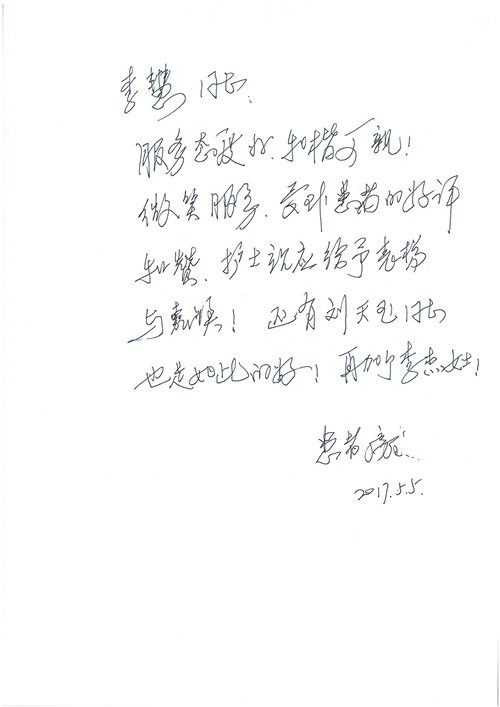 李慧同志:
服务态度好、和楷可亲!
微笑服务、受到患者的好评
和赞、护士就应给予表扬
与表奖! 还有刘天玉同志
也是如此的好! 再加个李杰女士!
患者
2017.5.5.